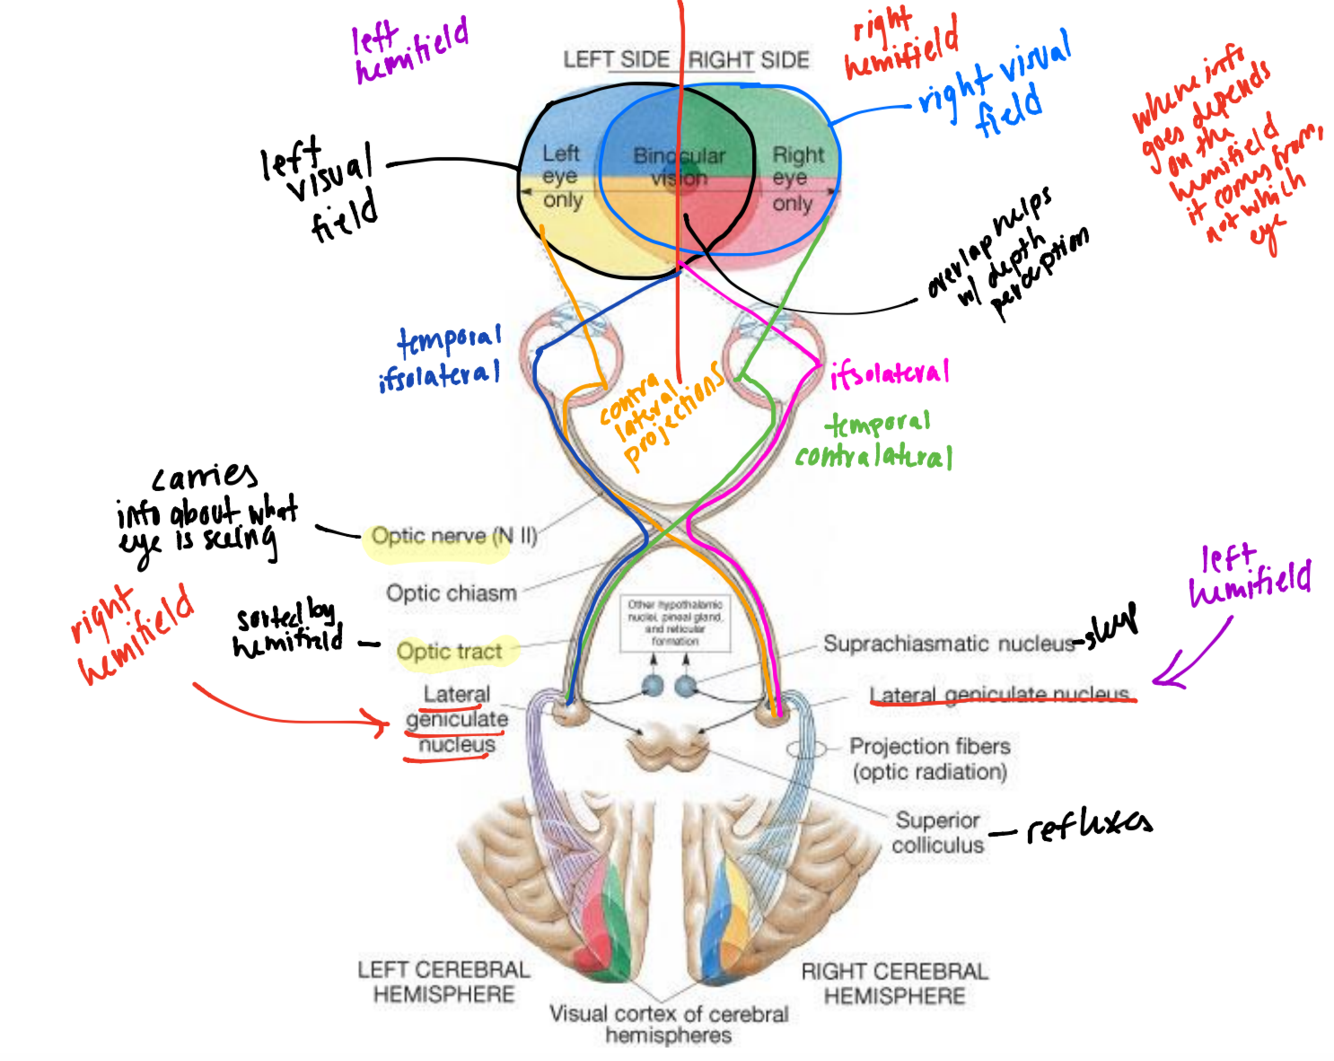 left
hemifield
LEFT SIDE RIGHT SIDE
right
hemifield
right visual
field
where info
goes depends
on the
hemifield
it comes from,
not which
eye
left
visual
field
Left
eye
only
Binocular
vision
Right
eye
only
overlap helps
w/ depth
perception
temporal
ifsolateral
contra
lateral
projections
ifsolateral
temporal
contralateral
carries
info about what
eye is seeing
Optic nerve (N II)
Optic chiasm
right
hemifield
sorted by
hemifield
Optic tract
Other hypothalamic
nuclei, pineal gland,
and reticular
formation
left
hemifield
Suprachiasmatic nucleus
sleep
Lateral
geniculate
nucleus
Lateral geniculate nucleus
Projection fibers
(optic radiation)
Superior
colliculus
reflexes
LEFT CEREBRAL
HEMISPHERE
RIGHT CEREBRAL
HEMISPHERE
Visual cortex of cerebral
hemispheres